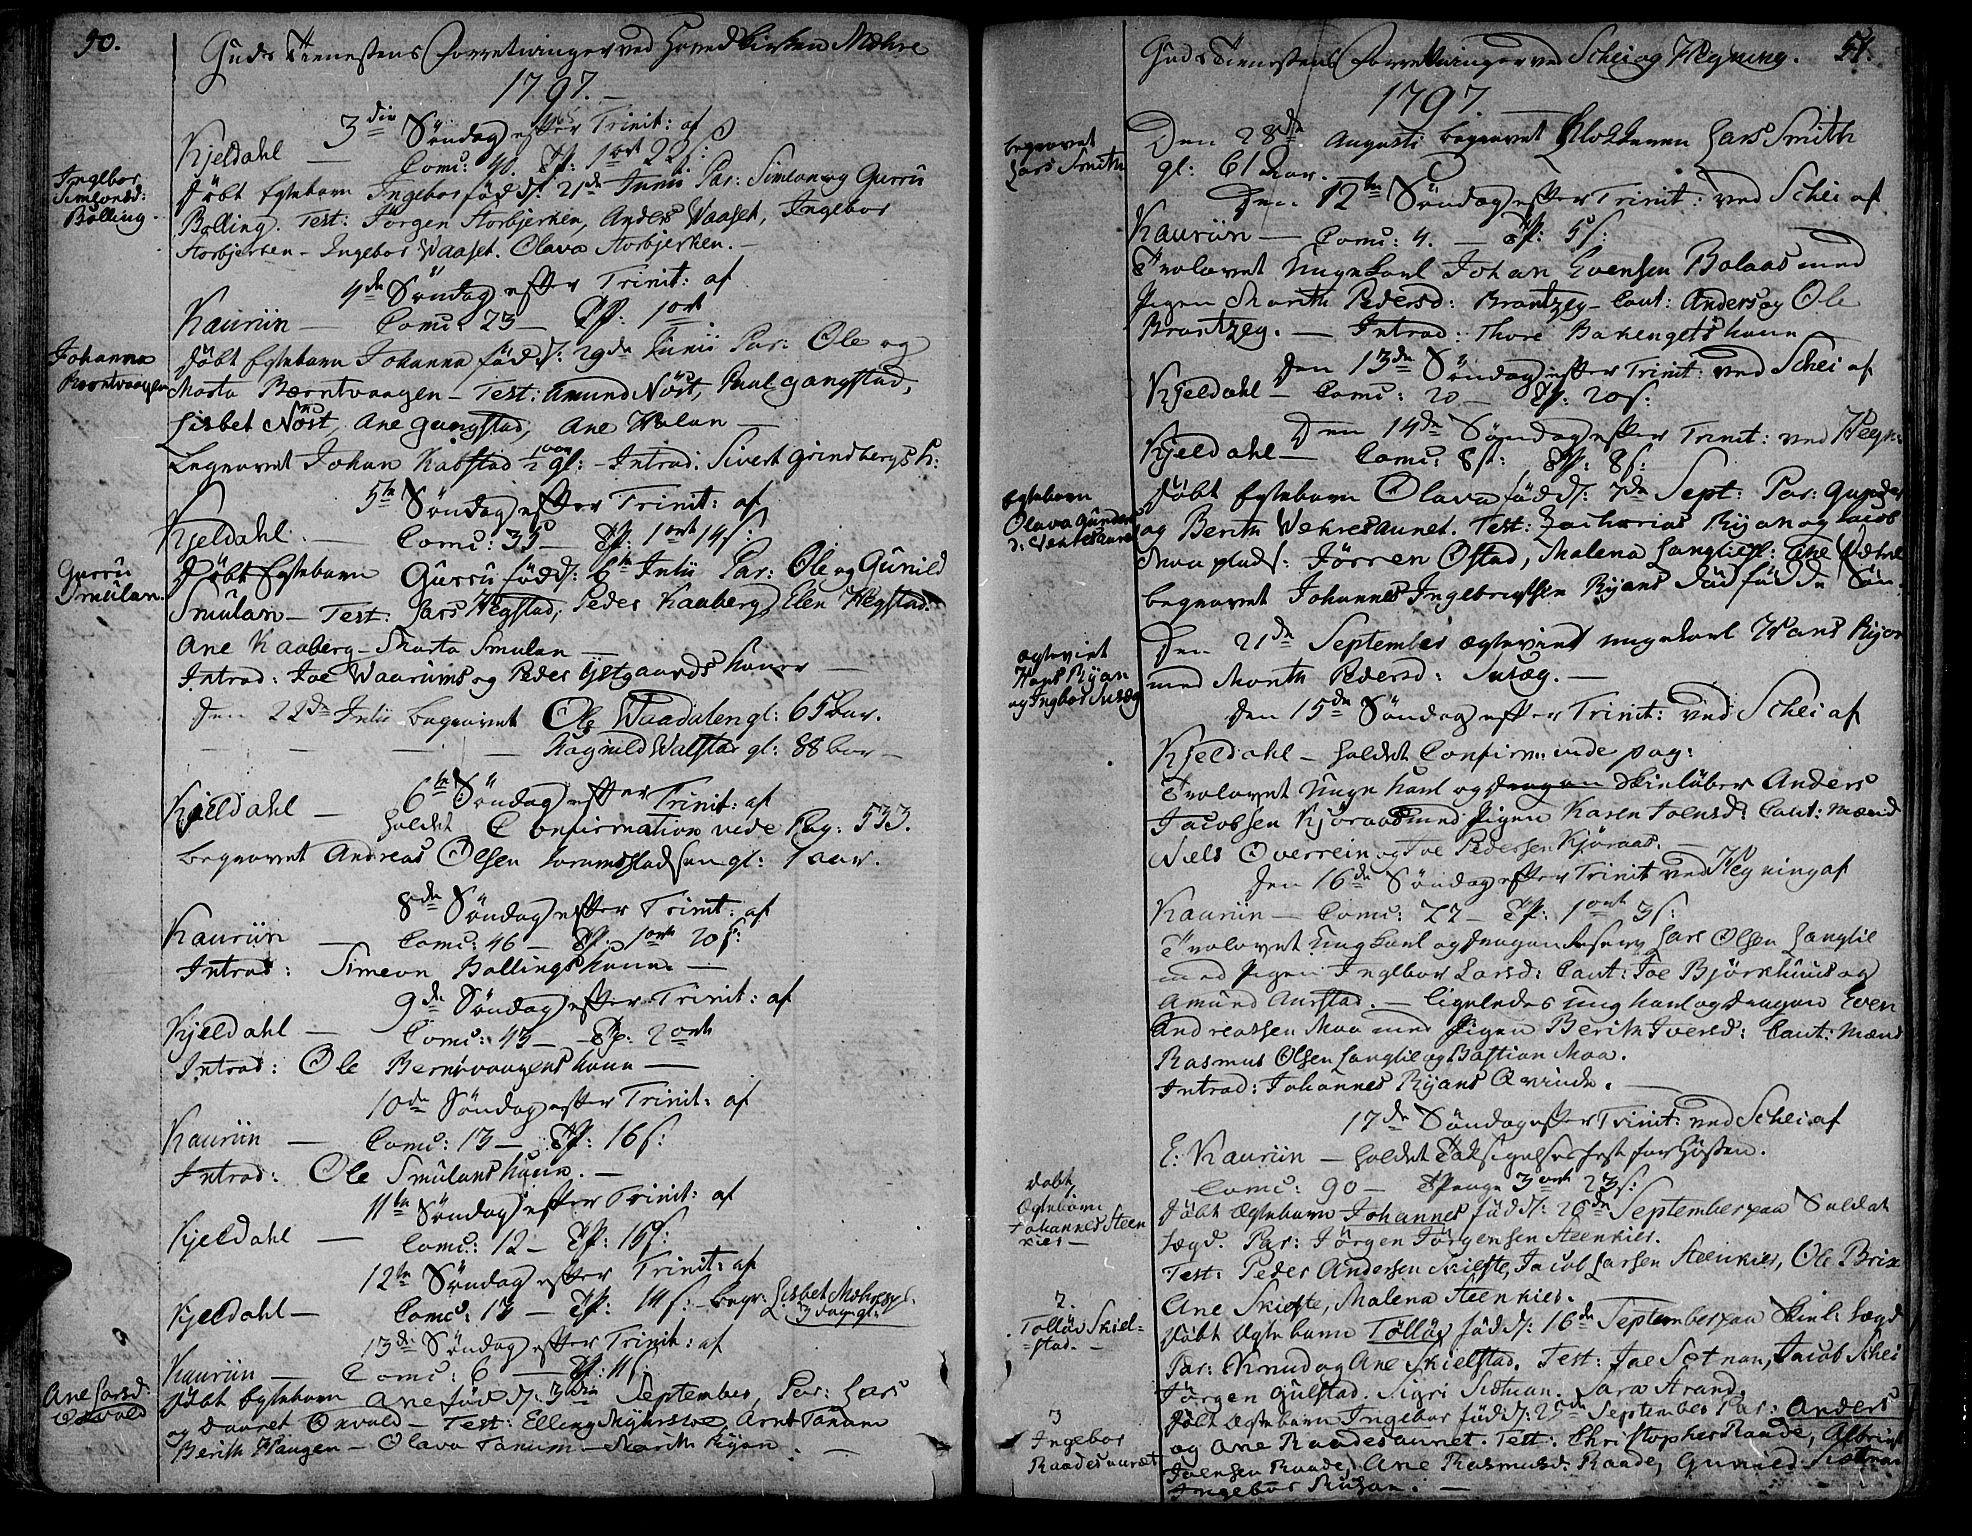 50.
Guds Tienestens Forretninger ved Hovedkirken Mæhre
1797.
3die Søndag efter Trinit: af
Kjeldahl — Comu: 40. Tp: 1 ort 22 s:
Ingebor
Simeonsd:
Bolling.
døbt Egtebarn Ingebor fød d: 21de Junii Par: Simeon og Gurru
Bolling. Test: Jörgen Storbjerken, Anders Vaaset, Ingebor
Storbjerken – Ingebor Vaaset. Olava Storbjerken. –
4de Søndag efter Trinit: af
Kauriin — Comu: 23 — Tp: 1 ort
Johanna
døbt Egtebarn Johanna fød d: 29de Junii Par: Ole og
Marta Berntvaagen – Test: Amund Nöst, Paul Gangstad,
Lisbet Nöst, Ane Gangstad, Ane
begravet Johan Kabstad ½ aar gl: – Introd: Sivert Grindbergs K:
5te Søndag efter Trinit: af
Kjeldahl. — Comu: 35 — Tp: 1 ort 14 s:
Gurru
Smulan.
døbt Egtebarn Gurru fød d: 6te Julii Par: Ole og Gunild
Smulan – Test: Lars Hegstad, Peder Kaaberg, Elen Hegstad.
Ane Kaaberg – Marta Smulan —
Introd: Joe Waarums og Peder Ystgaards koner —
Den 22de Julii begravet Ole Waadalen gl: 65 aar.
— — — Ragnild Walstad gl: 88 aar –
6te Søndag efter Trinit: af
Kjeldahl — holdet Confirmation vide Pag: 533.
begravet Andreas Olsen gl: 1 aar.
8de Søndag efter Trinit: af
Kauriin — Comu: 46 — Tp: 1 ort 20 s:
Introd: Simeon Bollings kone —
9de Søndag efter Trinit: af
Kjeldahl — Comu: 43 — Tp: 2 ort
Introd: Ole Berntvaagens kone —
10de Søndag efter Trinit: af
Kauriin — Comu: 13 — Tp: 16 s:
Introd: Ole Smulans kone. —
11te Søndag efter Trinit: af
Kjeldahl — Comu: 12 – Tp: 15 s:
12te Søndag efter Trinit: af
Kjeldahl — Comu: 13 — Tp: 14 s: – begr: Lisbet
3 dage gl:
13de Søndag efter Trinit: af
Kauriin — Comu: 6 — Tp: 11 s:
Ane Larsd:
Oxvold
døbt Egtebarn Ane fød d: 3die September, Par: Lars
og Oxvold – Test: Elling, Arnt Tanum
Berith Haugen – Olava Tanum – Marith Ryan. —
51.
Guds Tienestens Forretninger ved Schei og Hegning.
1797.
begravet
Lars Smith
Den 28de Augusti begravet Klokkeren Lars Smith
gl: 61 aar.
Den 12te Søndag efter Trinit: ved Schei af
Kauriin — Comu: 4. — Tp: 5 s:
Trolovet Ungekarl Johan Evensen Bolaas med
Pigen Marith Pedersd: Brantzeg – Caut: Anders og Ole
Brantzeg. — Introd: Thore kone
Den 13de Søndag efter Trinit: ved Schei af
Kjeldahl – Comu: 20 — Tp: 20 s:
Den 14de Søndag efter Trinit: ved Hegn:
Kjeldahl — Comu: 8 Tp: 8 s:
Egtebarn
Olava
døbt Egtebarn Olava fød d: 7de Sept: Par: Gunder
og Berith Test: Zacharias Ryan og Jacob
Moe plads: Jörren Østad, Malena Langlie
begravet Johannes Ingebrigtsen Ryans dødfødde Søn.
ægteviet
Hans Ryan
og Ingebor
Den 21de September ægteviet ungekarl Hans Ryan
med Pedersd: —
Den 15de Søndag efter Trinit: ved Schei af
Kjeldahl – holdet Confirm: vide pag:
Trolovet Unge karl og dragon Skiløber Anders
Jacobsen Kjöraas med Pigen Karen Joensd: Caut: Mænd
Niels Overrein og Joe Pedersen Kjöraas. —
Den 16de Søndag efter Trinit ved Hegning af
Kauriin — Comu: 22 – Tp: 1 ort 3 s:
Trolovet Ungkarl og dragon Lars Olsen Langlie
med Pigen Ingebor Larsd: Caut: Joe Björkhuus og
Amund Aurstad. — ligeledes Ungkarl og dragon Even
Andreassen Moa med Pigen Berith Iversd: Caut: Mænd
Rasmus Olsen Langlie og Bastian Moa.
Introd: Johannes Ryans Qvinde. —
17de Søndag efter Trinit: ved Schei af
E: Kauriin — holdet Taksigelses fest for Høsten.
Comu: 90 — Penge 3 ort 23 s:
døbt
Ægtebarn
Johannes Steen
kier –
døbt Ægtebarn Johannes fød d: 20de September paa Soldat
Lægd. Par: Jörgen Jörgensen Steenkier.
Test: Peder Andersen Skiefte, Jacob Larsen Steenkier, Ole Brix
Ane Skiefte, Malena Steenkier.
2.
Tolløv Skiel-
-stad. –
døbt Ægtebarn Tolløv fød d: 16de September paa Skiel: Lægd
Par: Knud og Ane Skielstad. Test: Joe Sætnan, Jacob Schei
Jörgen Gulstad. Sigri Sætnan. Sara Strand.
3
Ingebor
Raadesaunet
døbt Ægtebarn Ingebor fød d: 25de September Par: Anders
og Ane Raadesaunet. Test: Christopher Raade, Albrigt
Joensen Raade, Ane Rasmusd: Raade, Gunild Sætnan
Ingebor —